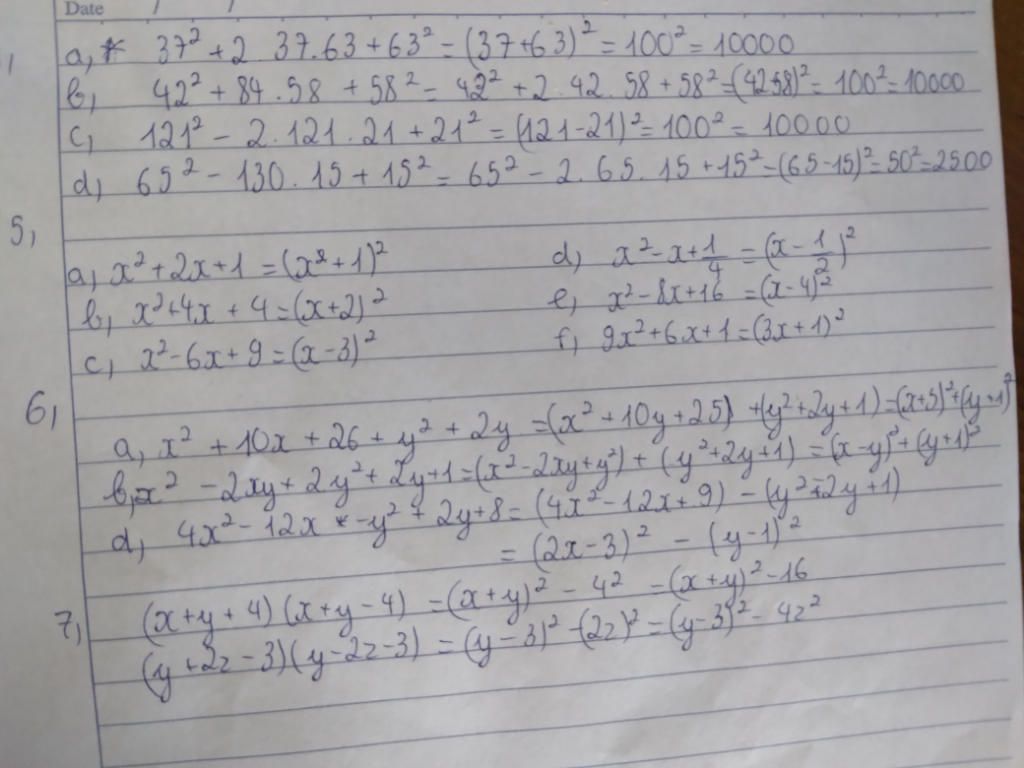 Date / /
a, 37² + 2 37.63 + 63² = (37+63)² = 100² = 10000
b, 42² + 84.58 + 58² = 42² + 2.42.58 + 58² = (4258)² = 100² = 10000
c, 121² - 2.121.21 + 21² = (121-21)² = 100² = 10000
d, 65² - 130.15 + 15² = 65² - 2.65.15 + 15² = (65-15)² = 50² = 2500
5,
a, x² + 2x + 1 = (x + 1)²
b, x² + 4x + 4 = (x+2)²
c, x² - 6x + 9 = (x-3)²
d, x² - x + 1/4 = (x - 1/2)²
e, x² - 8x + 16 = (x-4)²
f, 9x² + 6x + 1 = (3x+1)²
6,
a, x² + 10x + 26 + y² + 2y = (x² + 10y + 25) + (y² + 2y + 1) = (x+5)² + (y+1)²
b, x² - 2xy + 2y² + 2y + 1 = (x² - 2xy + y²) + (y² + 2y + 1) = (x-y)² + (y+1)²
d, 4x² - 12x - y² + 2y + 8 = (4x² - 12x + 9) - (y² - 2y + 1)
= (2x-3)² - (y-1)²
7,
(x+y+4)(x+y-4) = (x+y)² - 4² = (x+y)² - 16
(y+2z-3)(y-2z-3) = (y-3)² - (2z)² = (y-3)² - 4z²